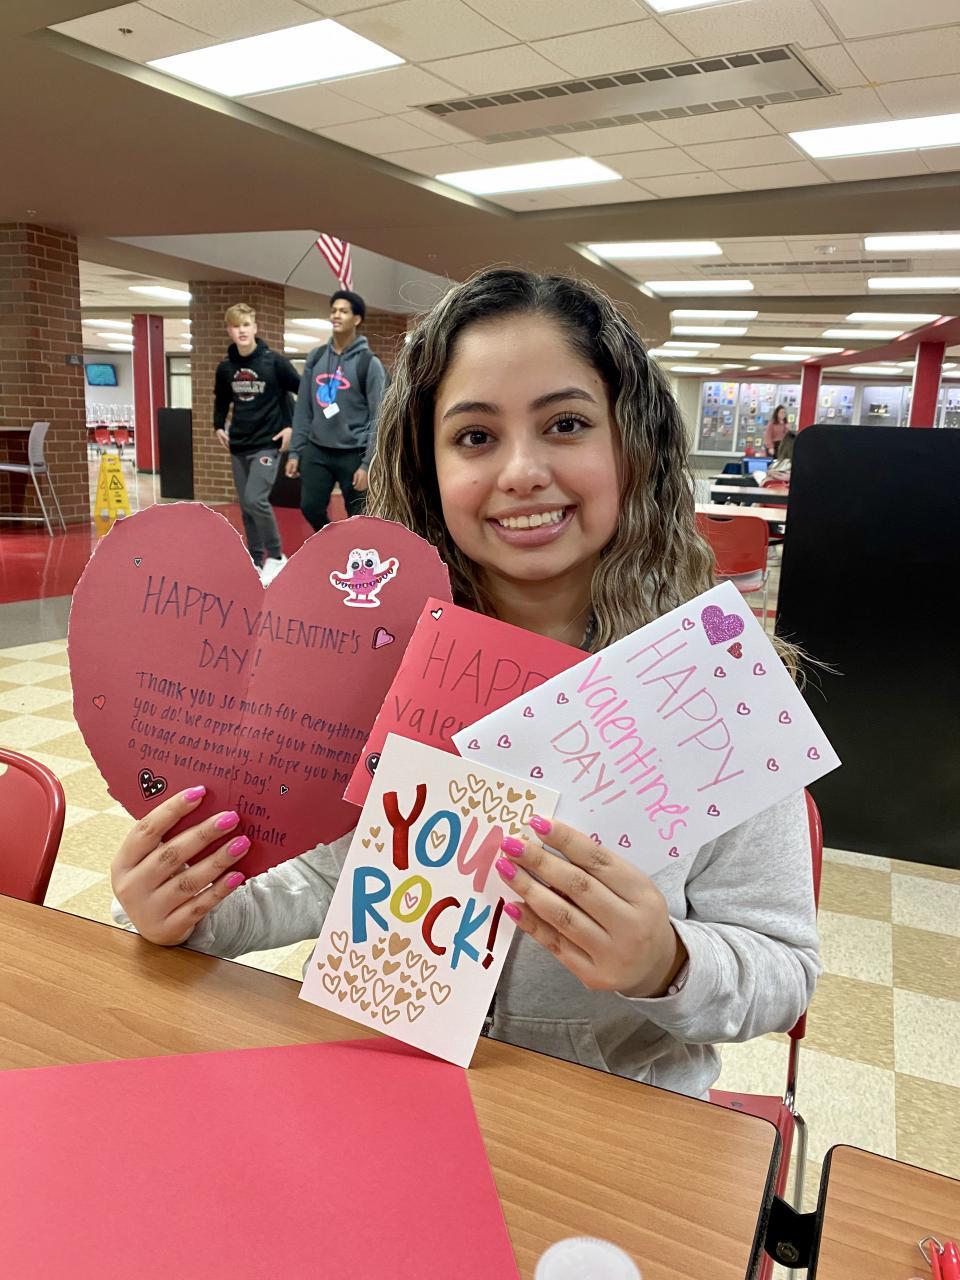 HAPPY VALENTINE'S
DAY!
Thank you so much for everything
you do! We appreciate your immens
courage and bravery. I hope you ha
a great valentine's day!
from,
Natalie
HAPP
Valen
HAPPY
Valentine's
DAY!
YOU
ROCK!
CAUTION